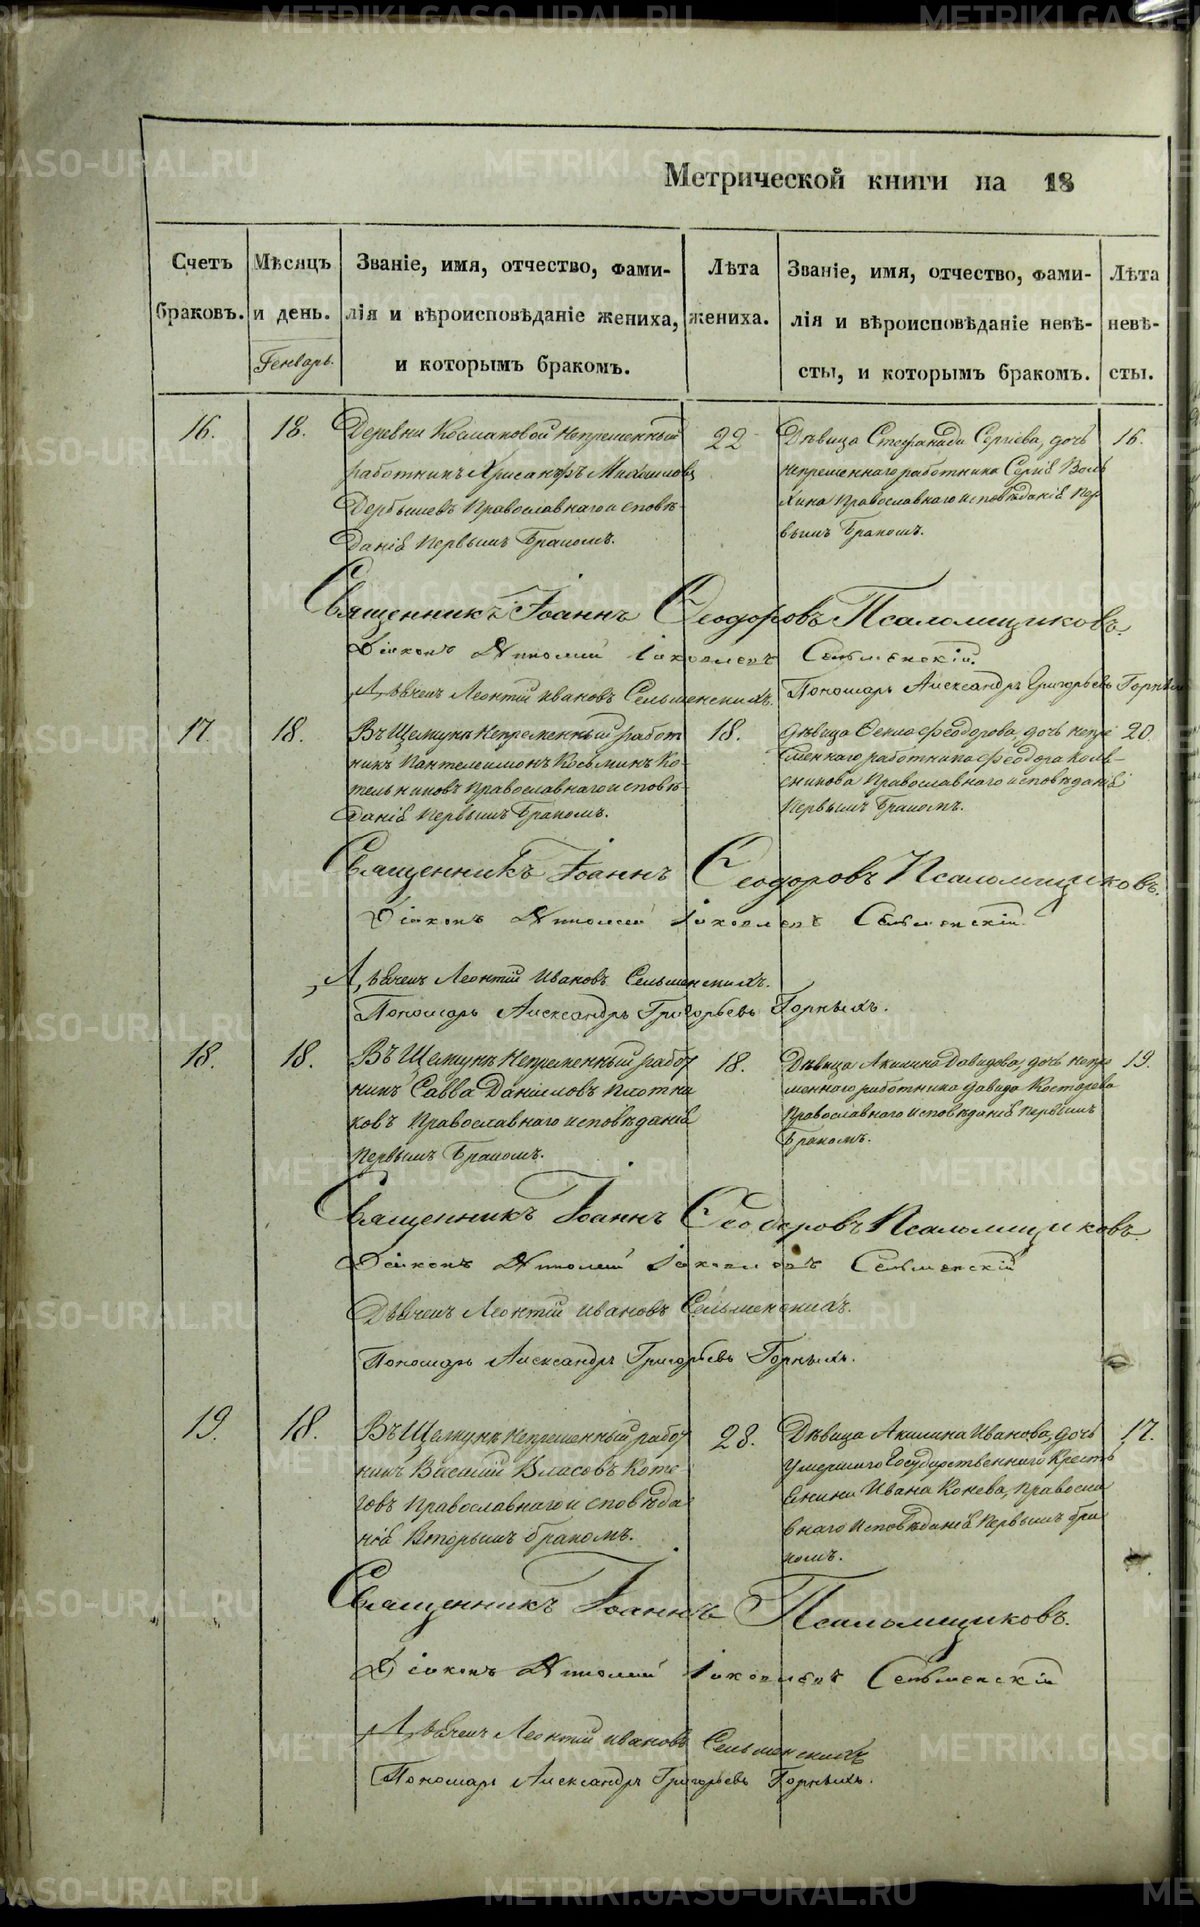 Метрической книги на 18
Счетъ браковъ.
Мѣсяцъ и день.
Генварь.
Званіе, имя, отчество, фами-
лія и вѣроисповѣданіе жениха,
и которымъ бракомъ.
Лѣта жениха.
Званіе, имя, отчество, фами-
лія и вѣроисповѣданіе невѣ-
сты, и которымъ бракомъ.
Лѣта невѣ-
сты.
16.
18.
Деревни Космаковой Непременный
работникъ Хрисанѳъ Михаиловъ
Дербышевъ Православнаго исповѣ-
данія Первымъ Бракомъ.
22
Дѣвица Стефанида Сергіева, дочь
непременнаго работника Сергія
Православнаго исповѣданія Пер
вымъ Бракомъ.
16.
Священникъ Іоаннъ Ѳеодоровъ Псаломщиковъ.
Діаконъ Іаковлевъ Селѣменскій.
Леонтій Ивановъ Сельменскихъ.
Пономарь Александръ Григорьевъ Горныхъ
17
18.
Въ Щелкунѣ Непременный работ
никъ Пантелеимонъ Козьминъ Ко-
тельниковъ Православнаго исповѣ-
данія Первымъ Бракомъ.
18.
Дѣвица Ѳекла Феодорова, дочь непре
меннаго работника Феодора Коле-
сникова Православнаго исповѣданія
Первымъ Бракомъ.
20.
Священникъ Іоаннъ Ѳеодоровъ Псаломщиковъ.
Діаконъ Іаковлевъ Селѣменскій.
Леонтій Ивановъ Сельменскихъ.
Пономарь Александръ Григорьевъ Горныхъ.
18.
18.
Въ Щелкунѣ Непременный работ
никъ Савва Даниловъ Плотни
ковъ Православнаго исповѣданія
Первымъ Бракомъ.
18.
Дѣвица Акилина Давидова, дочь непре
меннаго работника Давида Костарева
Православнаго исповѣданія Первымъ
Бракомъ.
19.
Священникъ Іоаннъ Ѳеодоровъ Псаломщиковъ.
Діаконъ Іаковлевъ Селѣменскій
Дьячекъ Леонтій Ивановъ Сельменскихъ.
Пономарь Александръ Григорьевъ Горныхъ.
19.
18.
Въ Щелкунѣ Непременный работ
никъ Василій Власовъ Коте
говъ Православнаго исповѣда
нія Вторымъ бракомъ.
28.
Дѣвица Акилина Иванова, дочь
умершаго Государственнаго Кресть
янина Ивана Конева, Правосла
внаго Исповѣданія Первымъ бра
комъ.
17.
Священникъ Іоаннъ Псаломщиковъ.
Діаконъ Іаковлевъ Селѣменскій
Леонтій Ивановъ Сельменскихъ
Пономарь Александръ Григорьевъ Горныхъ.
METRIKI.GASO-URAL.RU